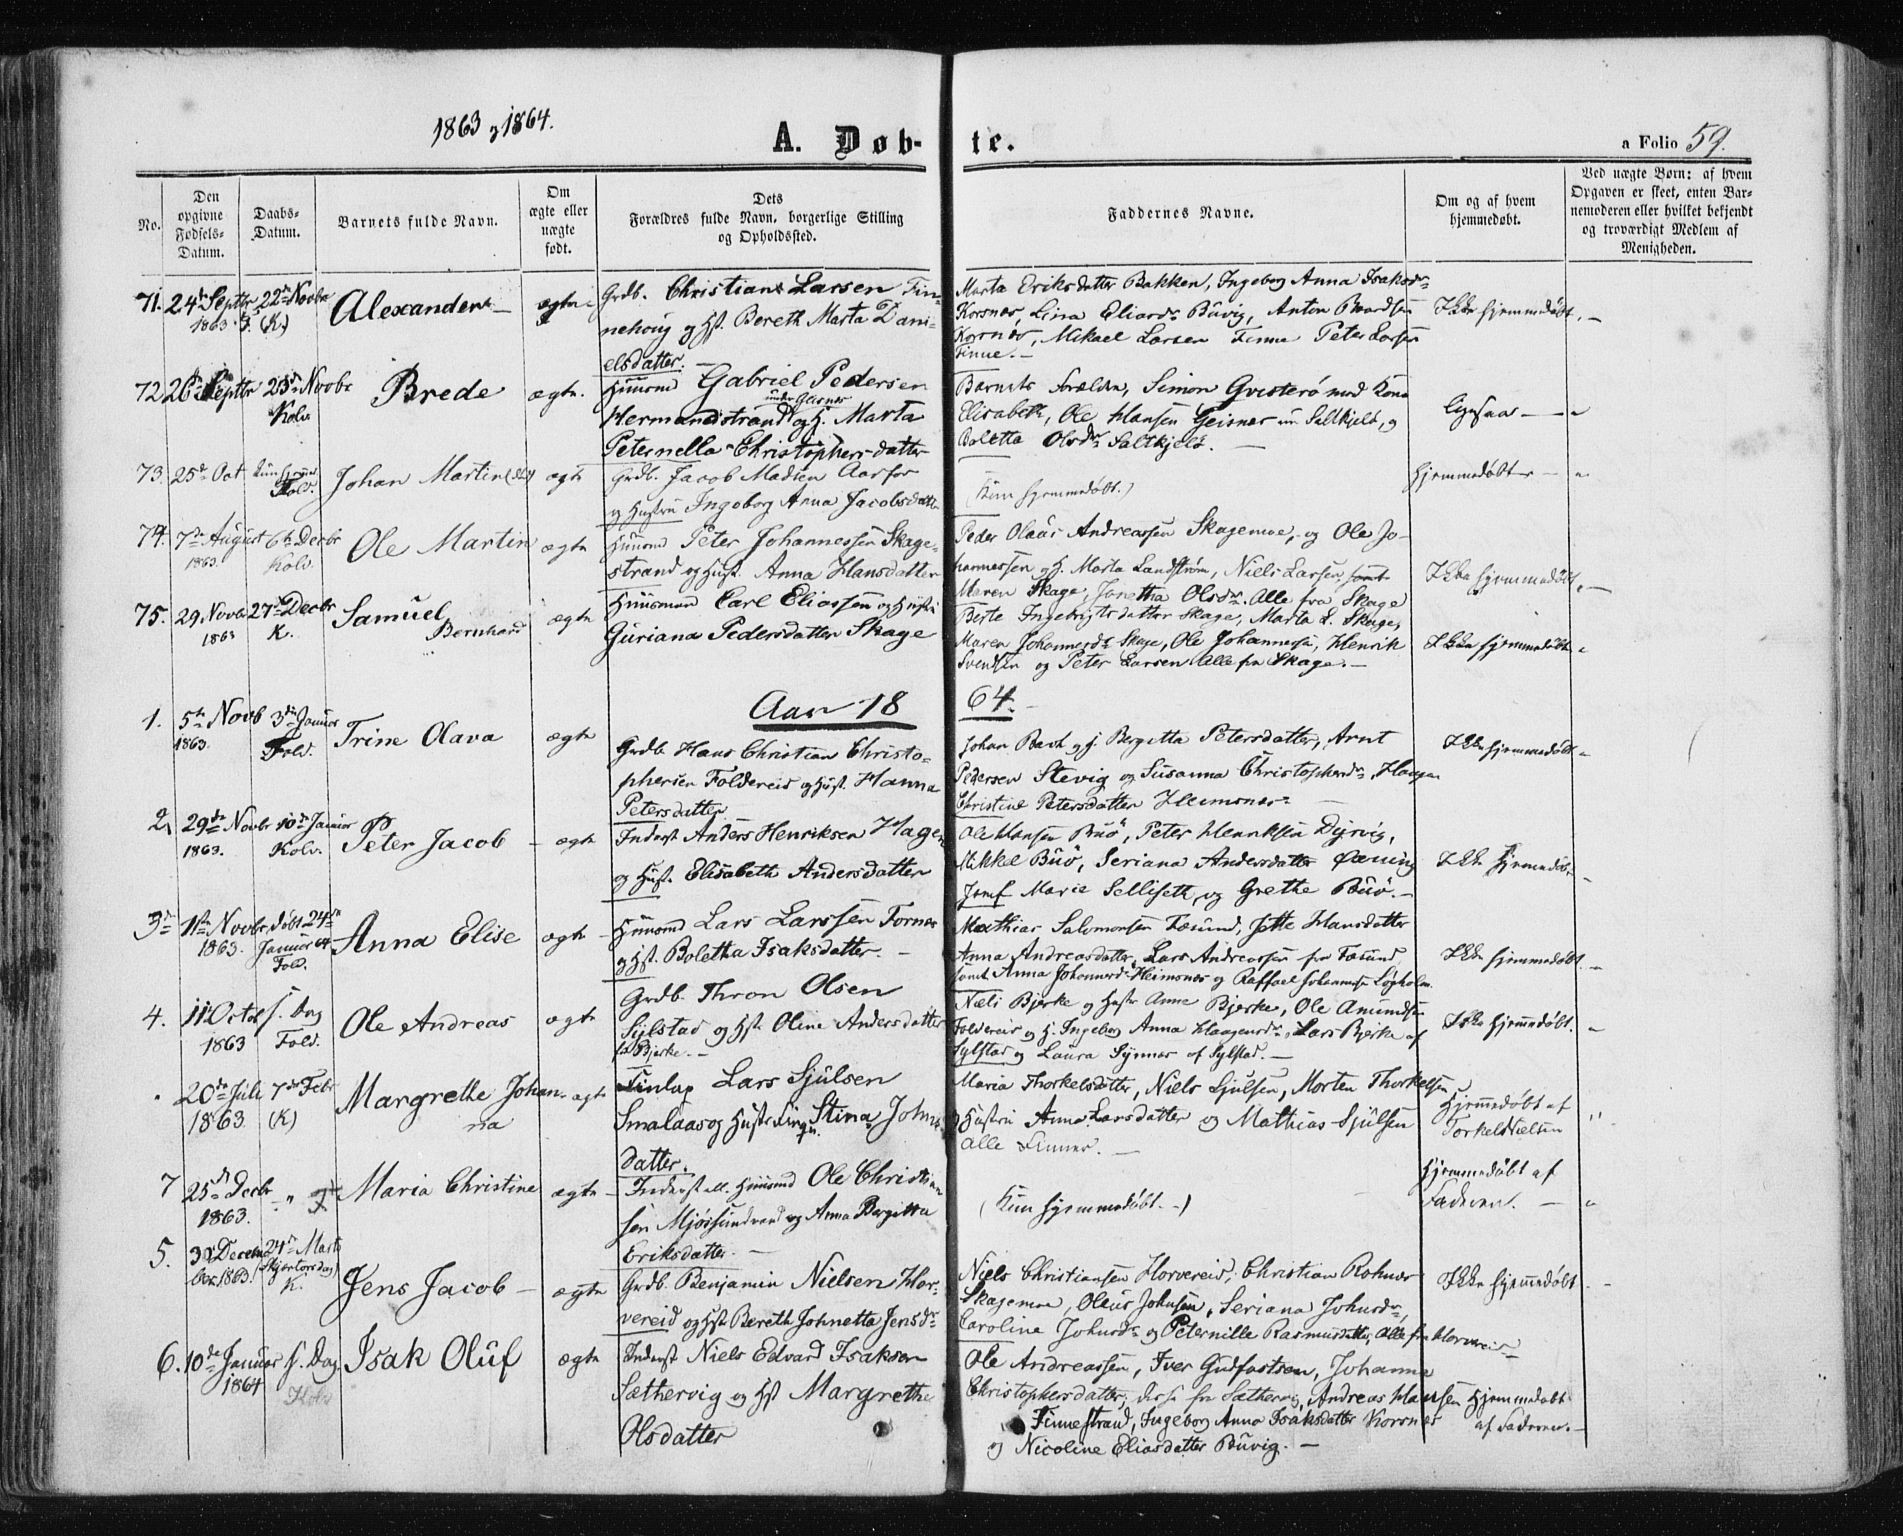 1863 og 1864.
A. Døb-
te.
a Folio 59.
No.
Den
opgivne
Fødsels-
Datum.
Daabs-
Datum.
Barnets fulde Navn.
Om
ægte eller
uægte
født.
Dets
Forældres fulde Navn, borgerlige Stilling
og Opholdssted.
Faddernes Navne.
Om og af hvem
hjemmedøbt.
Ved uægte Børn: af hvem
Opgaven er skeet, enten Bar-
nemoderen eller hvilket bekjendt
og troværdigt Medlem af
Menigheden.
71. 24de Septbr 22de Novbr
1863. F. (K.)
Alexander ægte
Grdb. Christian Larsen Fin-
nehoug og Hst. Bereth Marta Dani-
elsdatter.
Marta Eriksdatter Bakken, Ingeborg Anna Isaksdr
Korsnes, Lina Eliasdr Buvig, Anton
Korsnes, Mikael Larsen Finne Peter Larsen
Finne.
Ikke hjemmedøbt.
72 26de Septbr Novbr
Kolv.
Brede ægte.
Huusmd Gabriel Pedersen
under Geisnes
Hermandstrand og H. Marta
Peternella Christophersdatter
Barnets Forældre, Simon Qvisterø med Kone
Elisabeth, Ole Hansen Geisnes Saltkjeld, og
Boletta Olsdr Saltkjeld.
ligesaa
73. 25de Oct
Fold.
Johan Martin (død) ægte
Grdb. Jacob Madsen Aarfor
og Hustru Ingeborg Anna Jacobsdatter
(Kun hjemmedøbt.)
hjemmedøbt
74. 7de August 6te Decbr
1863. Kolv.
Ole Martin ægte
Huusmd Peter Johannessen Skage-
strand og Hust. Anna Hansdatter
Peder Olaus Andreassen Skagemoe, og Ole Jo-
hannessen og H. Marta Landstrøm, Niels Larsen, samt
Maren Skage, Jonetha Olsdr. Alle fra Skage
Ikke hjemmedøbt.
75. 29 Novbr 27de Decbr
1863 K.
Samuel
Bernhard
ægte
Huusmand Carl Eliassen og Hustru
Guriana Pedersdatter Skage
Berte Ingebrigtsdatter Skage, Marta L. Skage,
Maren Johannesdr Skage, Ole Johannessen, Henrik
Svendsen og Peter Larsen Alle fra Skage.
Ikke hjemmedøbt
Aar 18
64.
1. 5te Novb 3die Januar
1863. Fold.
Trine Olava ægte
Grdb. Hans Christian Christo-
phersen Foldereid og Hust. Hanna
Petersdatter
Johan Bach og H. Bergitta Petersdatter, Arnt
Pedersen Stevig og Susanna Christophersdr, Haagen
Christine Petersdatter Heimsnes
Ikke hjemmedøbt
2, 29de Novbr 10de Januar
1863. Kolv.
Peter Jacob ægte
Inderst Anders Henriksen Hagen
og Hust. Elisabeth Andersdatter
Ole Hansen Buø, Peter Henriksen Dyrvig,
Mikkel Buø, Seriana Andersdatter Øerning
Jomf Marie Selliseth og Grethe Buø.
Ikke hjemmedøbt
3de 11te Novbr døbt 24de
1863. Januar 64
Fold.
Anna Elise ægte
Huusmd Lars Larssen Fornes
og Hst. Boletha Isaksdatter.
Mathias Salomonsen Fæsund, Jette Hansdatter
Anna Andreasdatter, Lars Andreassen fra Fæsund,
samt Anna Johannesdr Heimsnes og Raffael Johannessen Løgholm
Ikke hjemmedøbt.
4. 11 Octob s. Dag
1863 Fold.
Ole Andreas ægte
Grdb. Thron Olsen
Sylstad og Hst Oline Andersdatter
fr Bjerke.
Neli Bjerke og Hustr Anne Bjerke, Ole Amundsen
Foldereid og H. Ingeborg Anna Haagensdr, Lars Bjerke af
Sylstad og Laura Synnes af Sylstad.
Ikke hjemmedøbt.
20de Juli 7de Febr
1863. (K)
Margrethe Johan-
na
ægte
Finlap Lars Sjulsen
Smalaas og Hustr Stina Johns
datter.
Maria Thorkelsdatter, Niels Sjulsen, Morten Thorkelsen
Hustru Anna Larsdatter og Mathias Sjulsen
alle Finner.
Hjemmedøbt af
Torkel Nielsen
7 25de Decbr
1863.
Maria Christine ægte
Inderst ell. Huusmd Ole Christian
sen Mjøssundvand og Anna Bergitta
Eriksdatter.
(Kun hjemmedøbt.)
Hjemmedøbt af
Faderen.
5. 30 Decem 24de Marts
ber 1863. (Skjærtorsdag)
K.
Jens Jacob ægte
Grdb. Benjamin Nielsen Hor-
vereid og Hst Bereth Johnetta Jensdr
Niels Christiansen Horvereid, Christian Rohnes
Skagemoe, Olaus Johnsen, Seriana Johnsdr,
Caroline Johnsdr og Peternille Rasmusdatter, Alle fra Horvereid
Ikke hjemmedøbt
6. 10de Januar s. Dag
1864 Kolv
Isak Oluf ægte
Inderst Niels Edvard Isaksen
Sæthervig og Hst Margrethe
Olsdatter
Ole Andreassen, Iver Gudfastsen, Johanna
Christophersdatter, disse fra Sæthervig, Andreas Hansen
Finnestrand, Ingeborg Anna Isaksdatter Korsnes
og Nicoline Eliasdatter Buvig.
Hjemmedøbt
af Faderen.